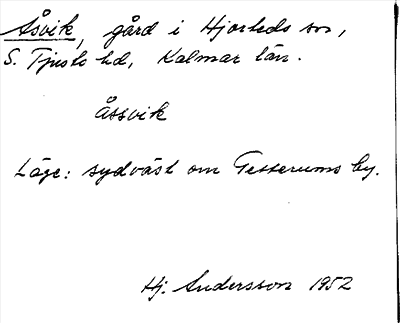 Åsvik, gård i Hjorteds sn,
S. Tjusts hd, Kalmar län.
åssvik
Läge: sydväst om Tesserums by.
Hj. Andersson 1952